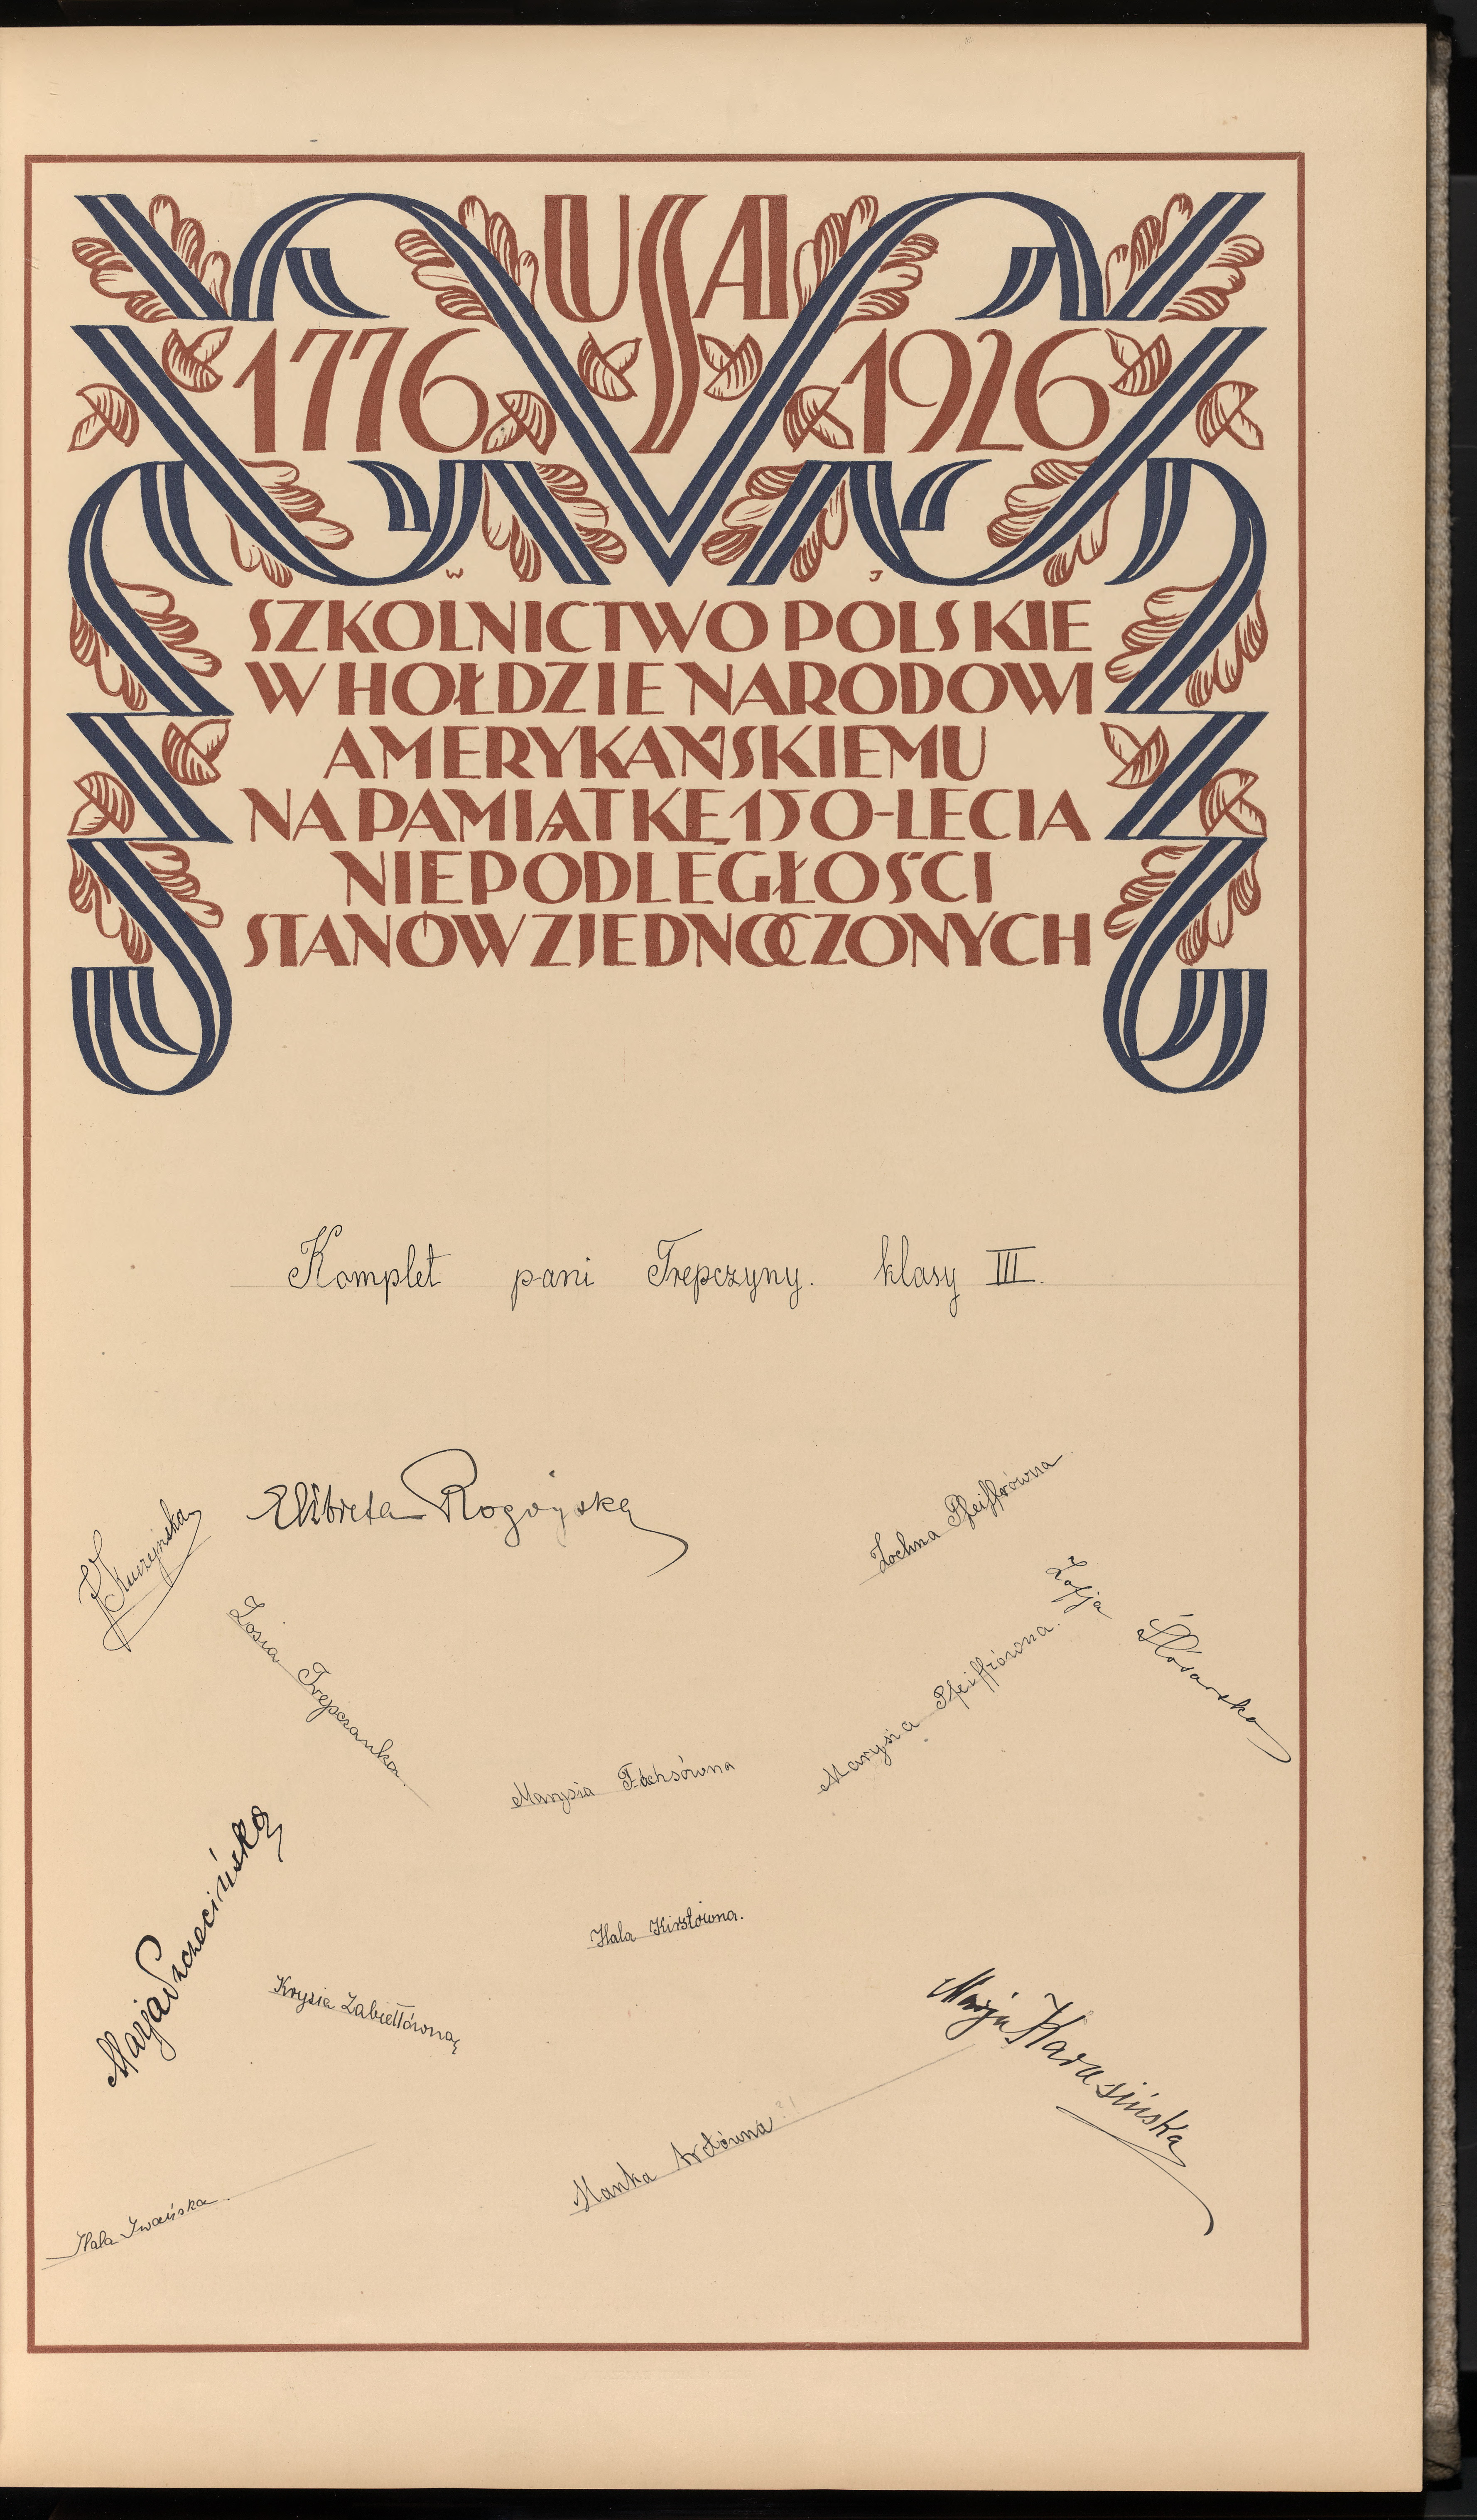 USA
1776 1926
W J
SZKOLNICTWO POLSKIE
W HOŁDZIE NARODOWI
AMERYKAŃSKIEMU
NA PAMIĄTKĘ 150-LECIA
NIEPODLEGŁOŚCI
STANÓW ZJEDNOCZONYCH
Komplet pani Trepczyny. klasy III.
Elżbieta Rogoyska
Zochna Pfeiffrówna.
Kuczyńska
Zosia Trepczanka.
Zofja Ślósarska
Marysia Pfeiffrówna.
Marysia Fuchsówna
Marja Szczecińska
Hala Kirstówna.
Krysia Zabiełłówna
Marja Karasińska
Manka Arctówna?!
Hala Iwańska.